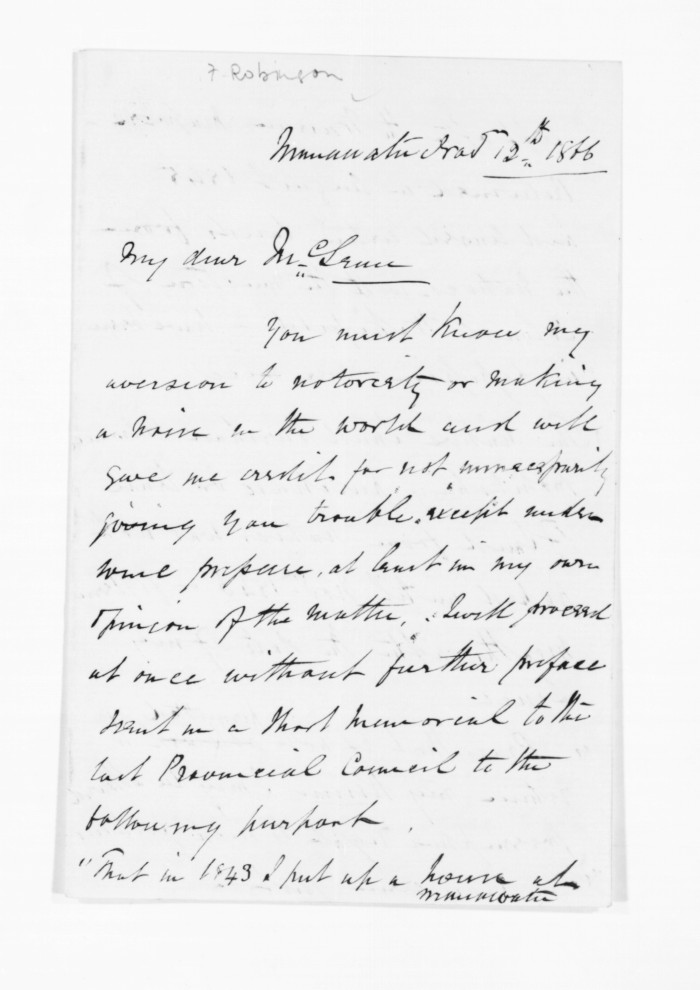 F Robinson
Manawatu 12th 1866
My dear McLean
You must know my
aversion to notoriety or making
a noise in the world and will
give me credit for not unnecessarily
giving you trouble, except under
some, at least in my own
opinion of the matter, I will proceed
at once without further preface
sent in a short Memorial to the
last Provincial Council to the
following purport.
"That in 1843 I put up a house at
Manawatu